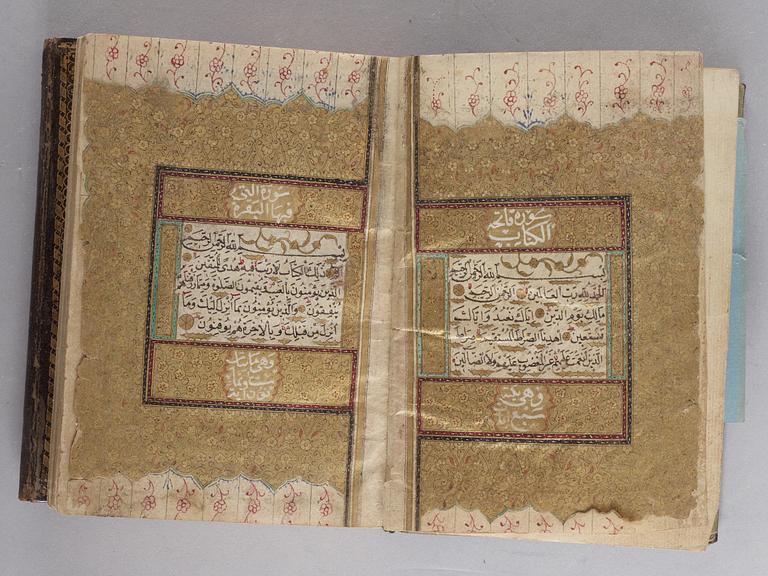 سورة فاتحة
الكتاب
بسم الله الرحمن الرحيم
الحمد لله رب العالمين الرحمن الرحيم
مالك يوم الدين اياك نعبد واياك
نستعين اهدنا الصراط المستقيم صراط
الذين انعمت عليهم غير المغضوب عليهم ولا الضالين
وهي
سبع آيات
سورة التي
فيها البقرة
بسم الله الرحمن الرحيم
الم ذلك الكتاب لا ريب فيه هدى للمتقين
الذين يؤمنون بالغيب ويقيمون الصلوة ومما رزقناهم
ينفقون والذين يؤمنون بما انزل اليك وما
انزل من قبلك وبالاخرة هم يوقنون
وهي مايتان
وثمانون